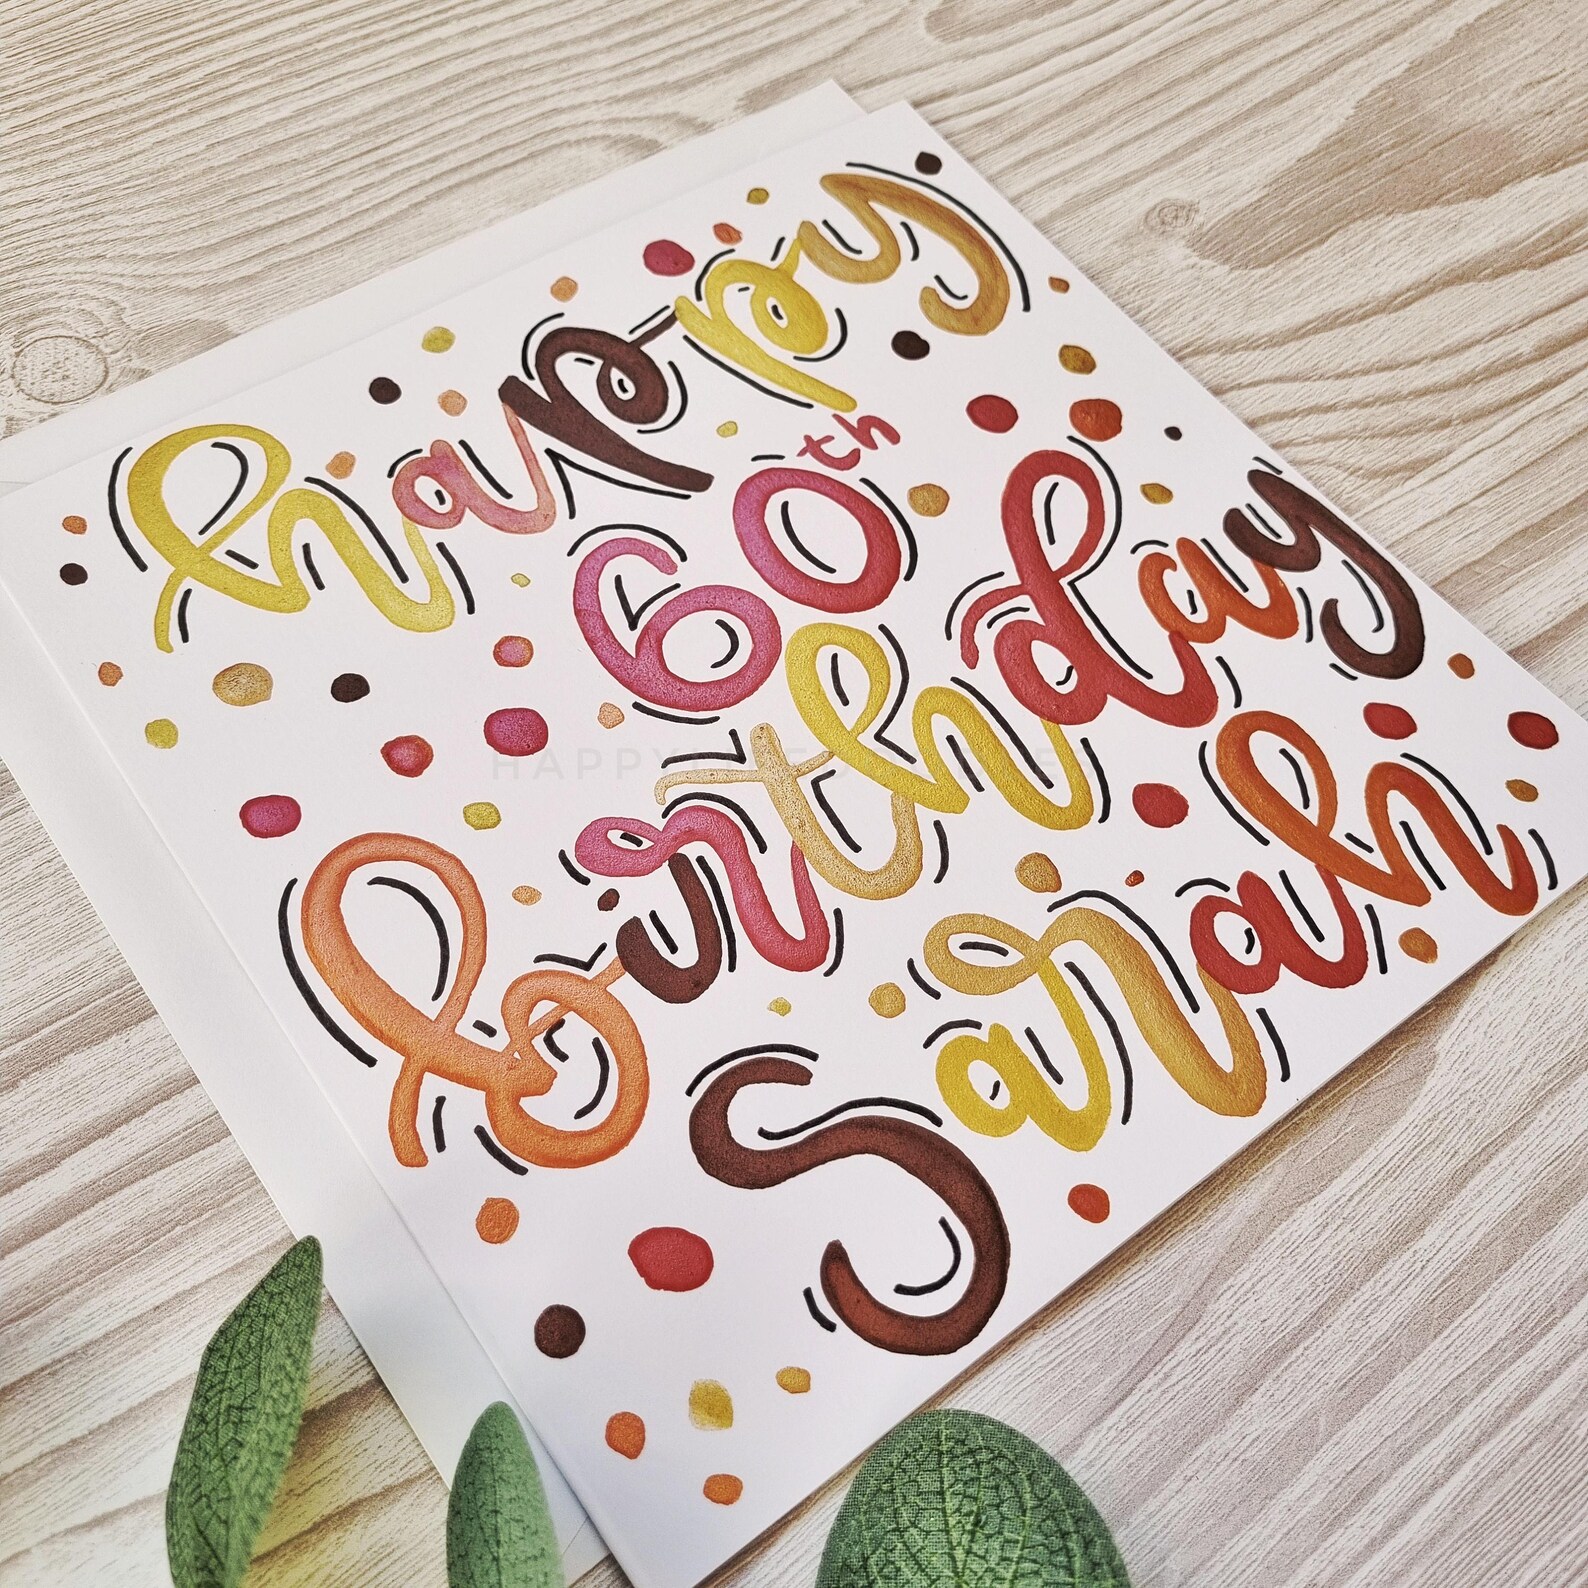 happy
60th
birthday
Sarah